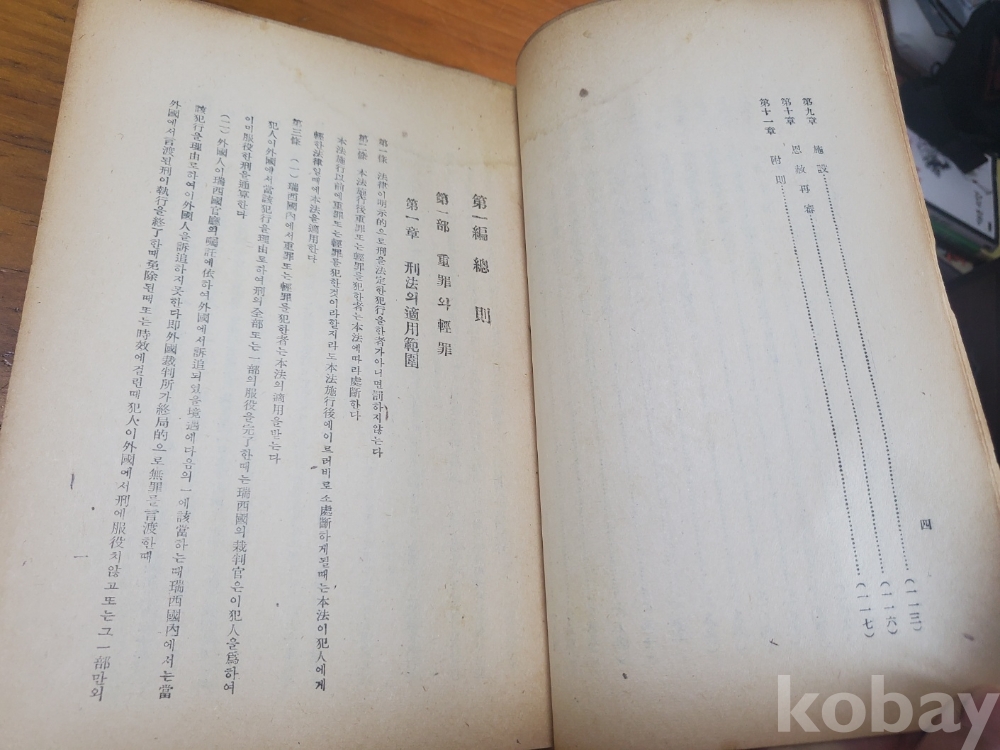 第九章 施設……(一一三)
第十章 恩赦再審……(一一六)
第十一章 附則……(一一七)
四
第一編 總則
第一部 重罪와 輕罪
第一章 刑法의適用範圍
第一條 法律이明示的으로刑을法定한犯行을한者가아니면罰하지않는다
第二條 本法施行後重罪또는輕罪를犯한者는本法에따라處斷한다
本法施行以前에重罪또는輕罪를犯한것이라할지라도本法施行後에이르러비로소處斷하게될때는本法이犯人에게
輕한法律일때에本法을適用한다
第三條 (一)瑞西國內에서重罪또는輕罪를犯한者는本法의適用을받는다
犯人이外國에서當該犯行을理由로하여刑의全部또는一部의服役을完了한때는瑞西國의裁判官은이犯人을爲하여
이미服役한刑을通算한다
(二)外國人이瑞西國官廳의囑託에依하여外國에서訴追되었을境遇에다음의一에該當하는때瑞西國內에서는當
該犯行을理由로하여이外國人을訴追하지못한다即外國裁判所가終局的으로無罪를言渡한때
外國에서言渡된刑이執行을終了한때免除된때또는時效에걸린때犯人이外國에서刑에服役치않고또는그一部만외
一
kobay